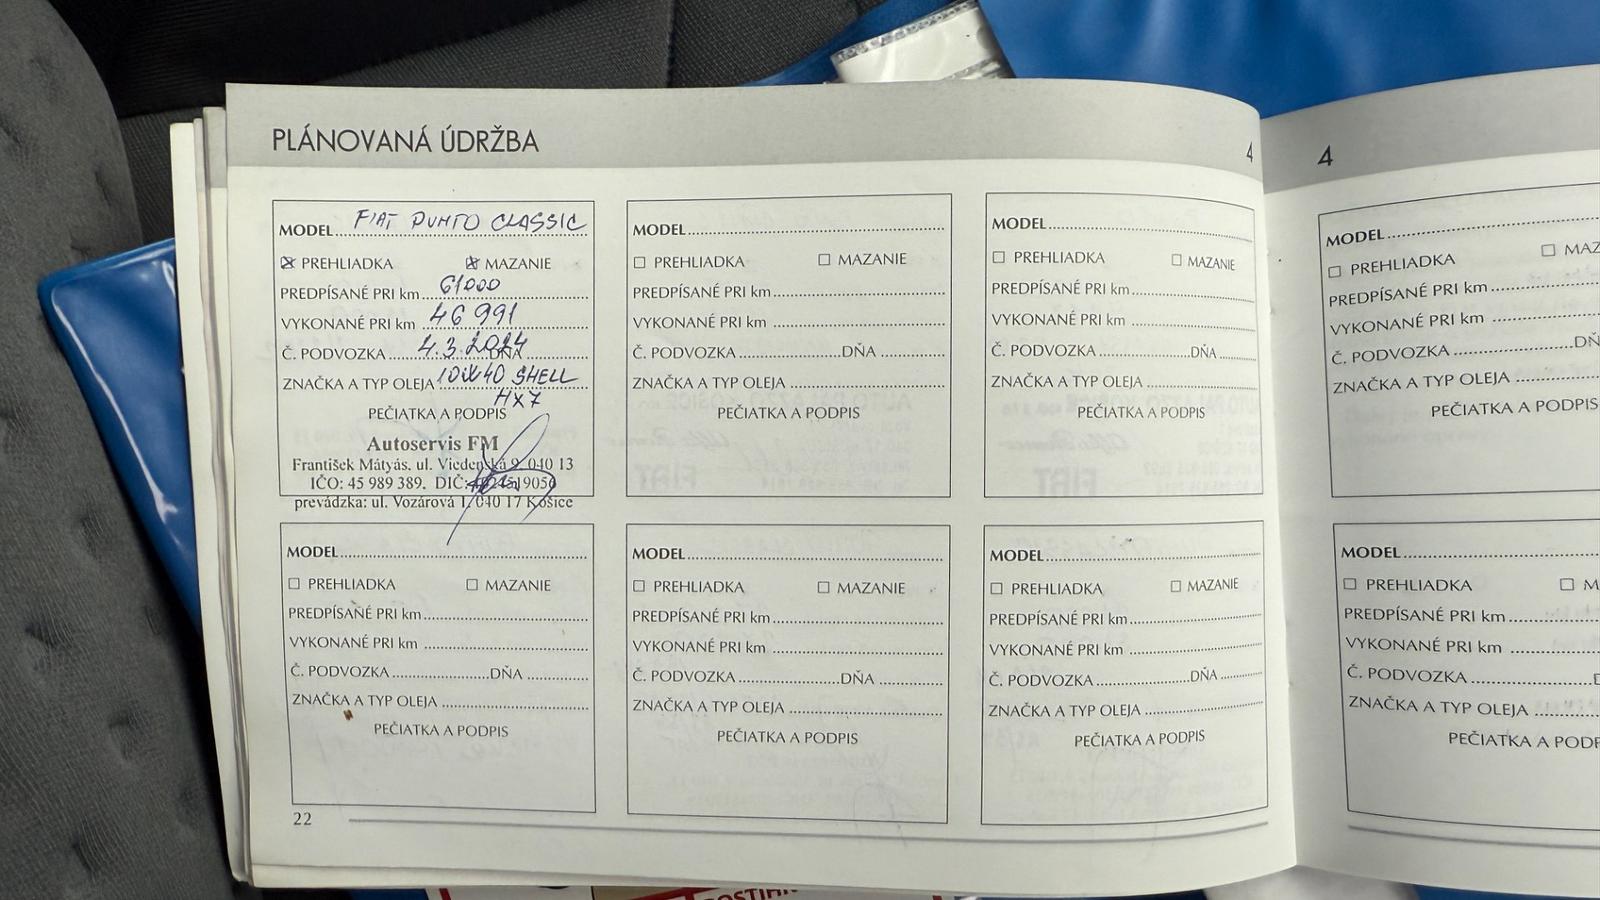 PLÁNOVANÁ ÚDRŽBA
4
MODEL FIAT PUNTO CLASSIC
☒ PREHLIADKA ☒ MAZANIE
PREDPÍSANÉ PRI km 61000
VYKONANÉ PRI km 46 991
Č. PODVOZKA 4.3.2014 DŇA
ZNAČKA A TYP OLEJA 10W40 SHELL
HX7
PEČIATKA A PODPIS
Autoservis FM
František Mátyás. ul. Viedenská 9, 040 13
IČO: 45 989 389. DIČ:
prevádzka: ul. Vozárová 1, 040 17 Košice
MODEL
☐ PREHLIADKA ☐ MAZANIE
PREDPÍSANÉ PRI km
VYKONANÉ PRI km
Č. PODVOZKA DŇA
ZNAČKA A TYP OLEJA
PEČIATKA A PODPIS
MODEL
☐ PREHLIADKA ☐ MAZANIE
PREDPÍSANÉ PRI km
VYKONANÉ PRI km
Č. PODVOZKA DŇA
ZNAČKA A TYP OLEJA
PEČIATKA A PODPIS
MODEL
☐ PREHLIADKA ☐ MAZANIE
PREDPÍSANÉ PRI km
VYKONANÉ PRI km
Č. PODVOZKA DŇA
ZNAČKA A TYP OLEJA
PEČIATKA A PODPIS
MODEL
☐ PREHLIADKA ☐ MAZANIE
PREDPÍSANÉ PRI km
VYKONANÉ PRI km
Č. PODVOZKA DŇA
ZNAČKA A TYP OLEJA
PEČIATKA A PODPIS
MODEL
☐ PREHLIADKA ☐ MAZANIE
PREDPÍSANÉ PRI km
VYKONANÉ PRI km
Č. PODVOZKA DŇA
ZNAČKA A TYP OLEJA
PEČIATKA A PODPIS
22
4
MODEL
☐ PREHLIADKA ☐ MAZ
PREDPÍSANÉ PRI km
VYKONANÉ PRI km
Č. PODVOZKA DŇ
ZNAČKA A TYP OLEJA
PEČIATKA A PODPIS
MODEL
☐ PREHLIADKA ☐ M
PREDPÍSANÉ PRI km
VYKONANÉ PRI km
Č. PODVOZKA
ZNAČKA A TYP OLEJA
PEČIATKA A PODP